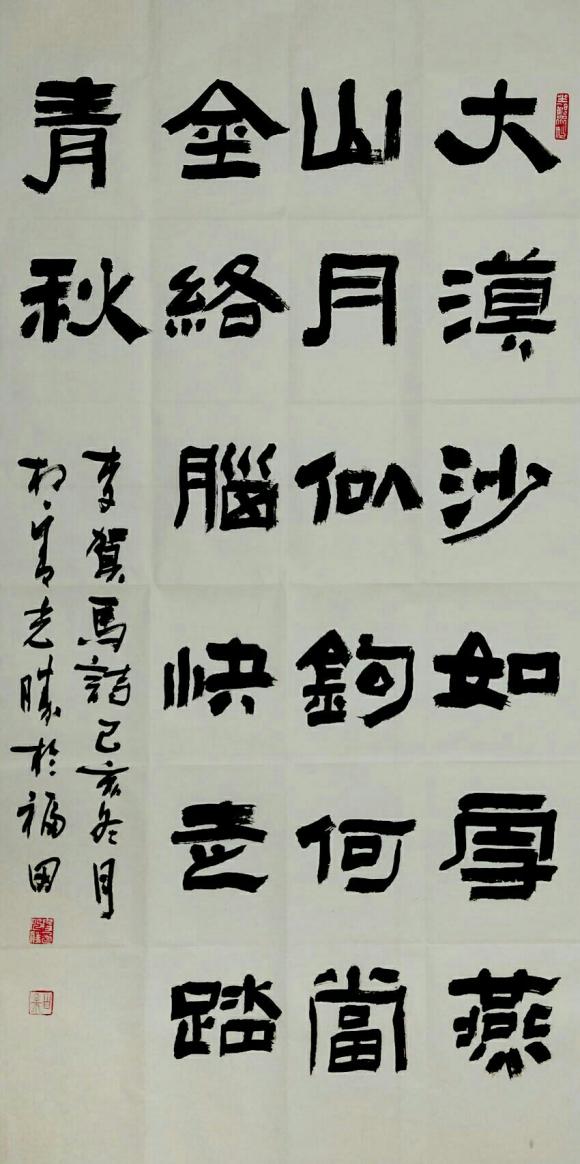 大漠沙如雪燕
山月似鉤何當
金絡腦快走踏
青秋
李賀馬詩己亥冬月
志勝於福田